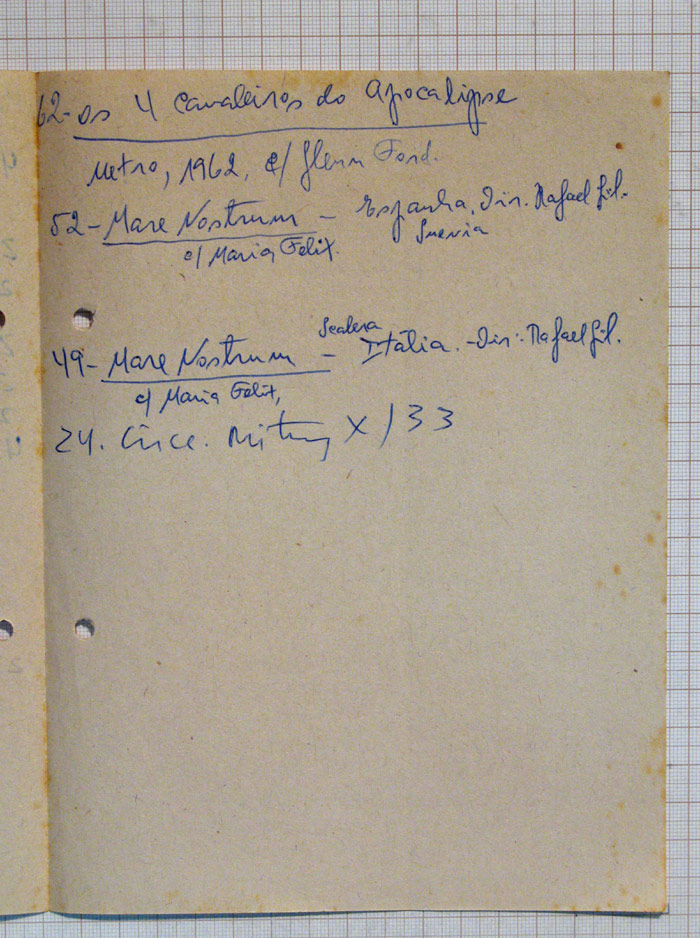 62- os 4 Cavaleiros do Apocalipse
Metro, 1962, c/ Glenn Ford.
52- Mare Nostrum - Espanha, Dir. Rafael Gil.
Suevia
c/ Maria Felix.
Scalera
49- Mare Nostrum - Itália. - Dir. Rafael Gil.
c/ Maria Felix,
24. Circe. X/33